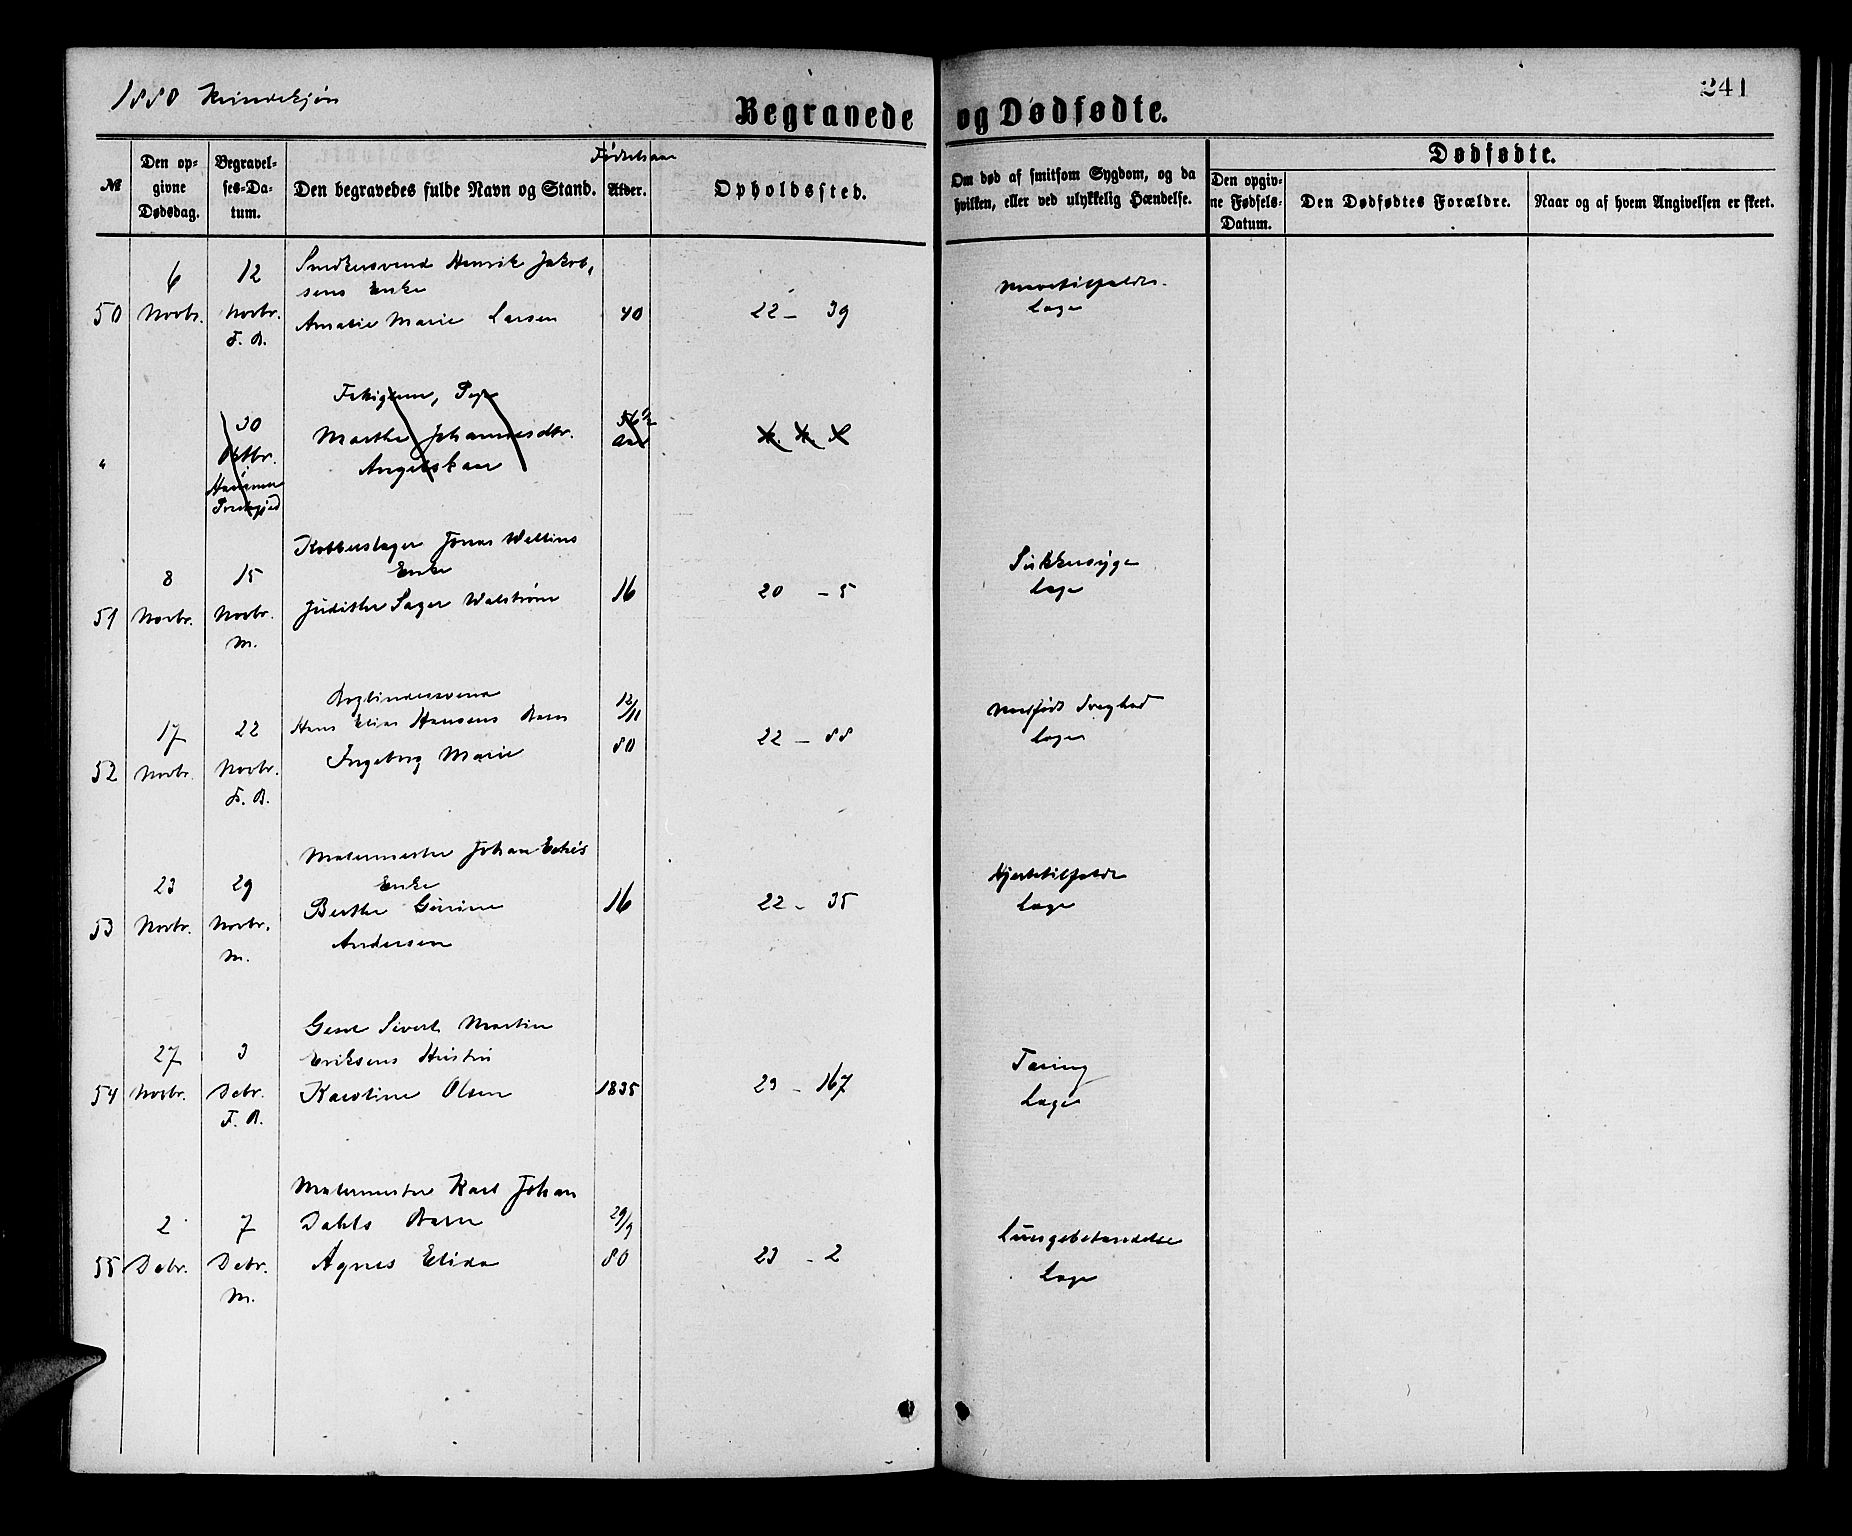 1880 Kvindekjøn
241
Begravede og Dødfødte.
No
Den op-
givne
Dødsdag.
Begravel-
ses-Da-
tum.
Den begravedes fulde Navn og Stand.
Fødselsaar
Alder.
Opholdssted.
Om død af smitsom Sygdom, og da
hvilken, eller ved ulykkelig Hændelse.
Dødfødte.
Den opgiv-
ne Fødsels-
Datum.
Den Dødfødtes Forældre.
Naar og af hvem Angivelsen er skeet.
50
6
Novbr.
12
Novbr.
F. B.
Snedkersvend Henrik Jakob-
sens Enke
Amalie Marie Larsen
40
22 - 39
Mavetilfælde.
Læge
"
30
Oktbr.
Fattiglem, Pige
Marthe Johannesdtr.
56 1/2
Aar
51
8
Novbr.
15
Novbr.
M.
Kobberslager Jonas Wallins
Enke
Judithe Sager Walstrøm
16
20 - 5
Sukkersyge
Læge
52
17
Novbr.
22
Novbr.
F. B.
Hans Elias Hansens Barn
Ingeborg Marie
12/11
80
22 - 88
Medfødt Svaghed
Læge
53
23
Novbr.
29
Novbr.
M.
Malermester Johan
Enke
Berthe Gurine
Andersen
16
22 - 35
Hjertetilfælde
Læge
54
27
Novbr.
3
Debr.
F. B.
Gesel Sivert Martin
Eriksens Hustru
Karoline Olsen
1835
23 - 167
Tæring
Læge
55
2
Debr.
7
Debr.
M.
Malermester Karl Johan
Dahls Barn
Agnes Elida
29/9
80
23 - 2
Lungebetændelse
Læge